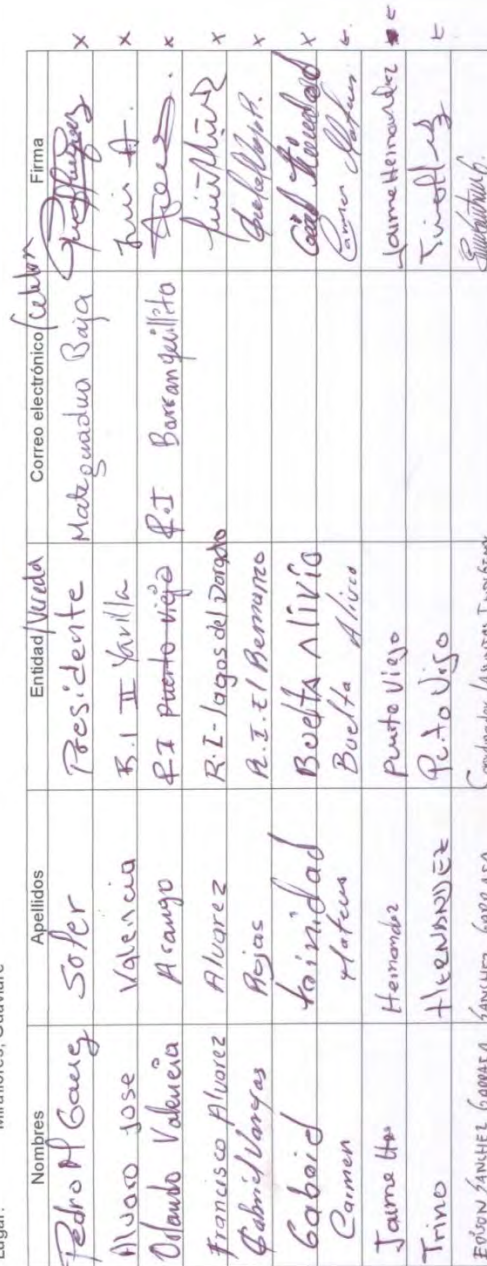 Lugar: Miraflores, Guaviare
Nombres Apellidos Entidad/Vereda Correo electrónico/Celular Firma
Pedro A Soler Presidente Mateguadua Baja x
Alvaro Jose Valencia R.I II Yavilla Luis A. x
Orlando Valencia Arango R.I Puerto viejo R.I Barranquillita x
Francisco Alvarez Alvarez R.I-lagos del Dorado x
Gabriel Vargas Rojas R.I. El Remanzo x
Trinidad Buelta Alivio x
Carmen Mateus Buelta Alivio Carmen Mateus E.
Jaime Hernandez Punto Viejo Jaime Hernandez E
Trino HERNANDEZ E
EDISON SANCHEZ SANCHEZ